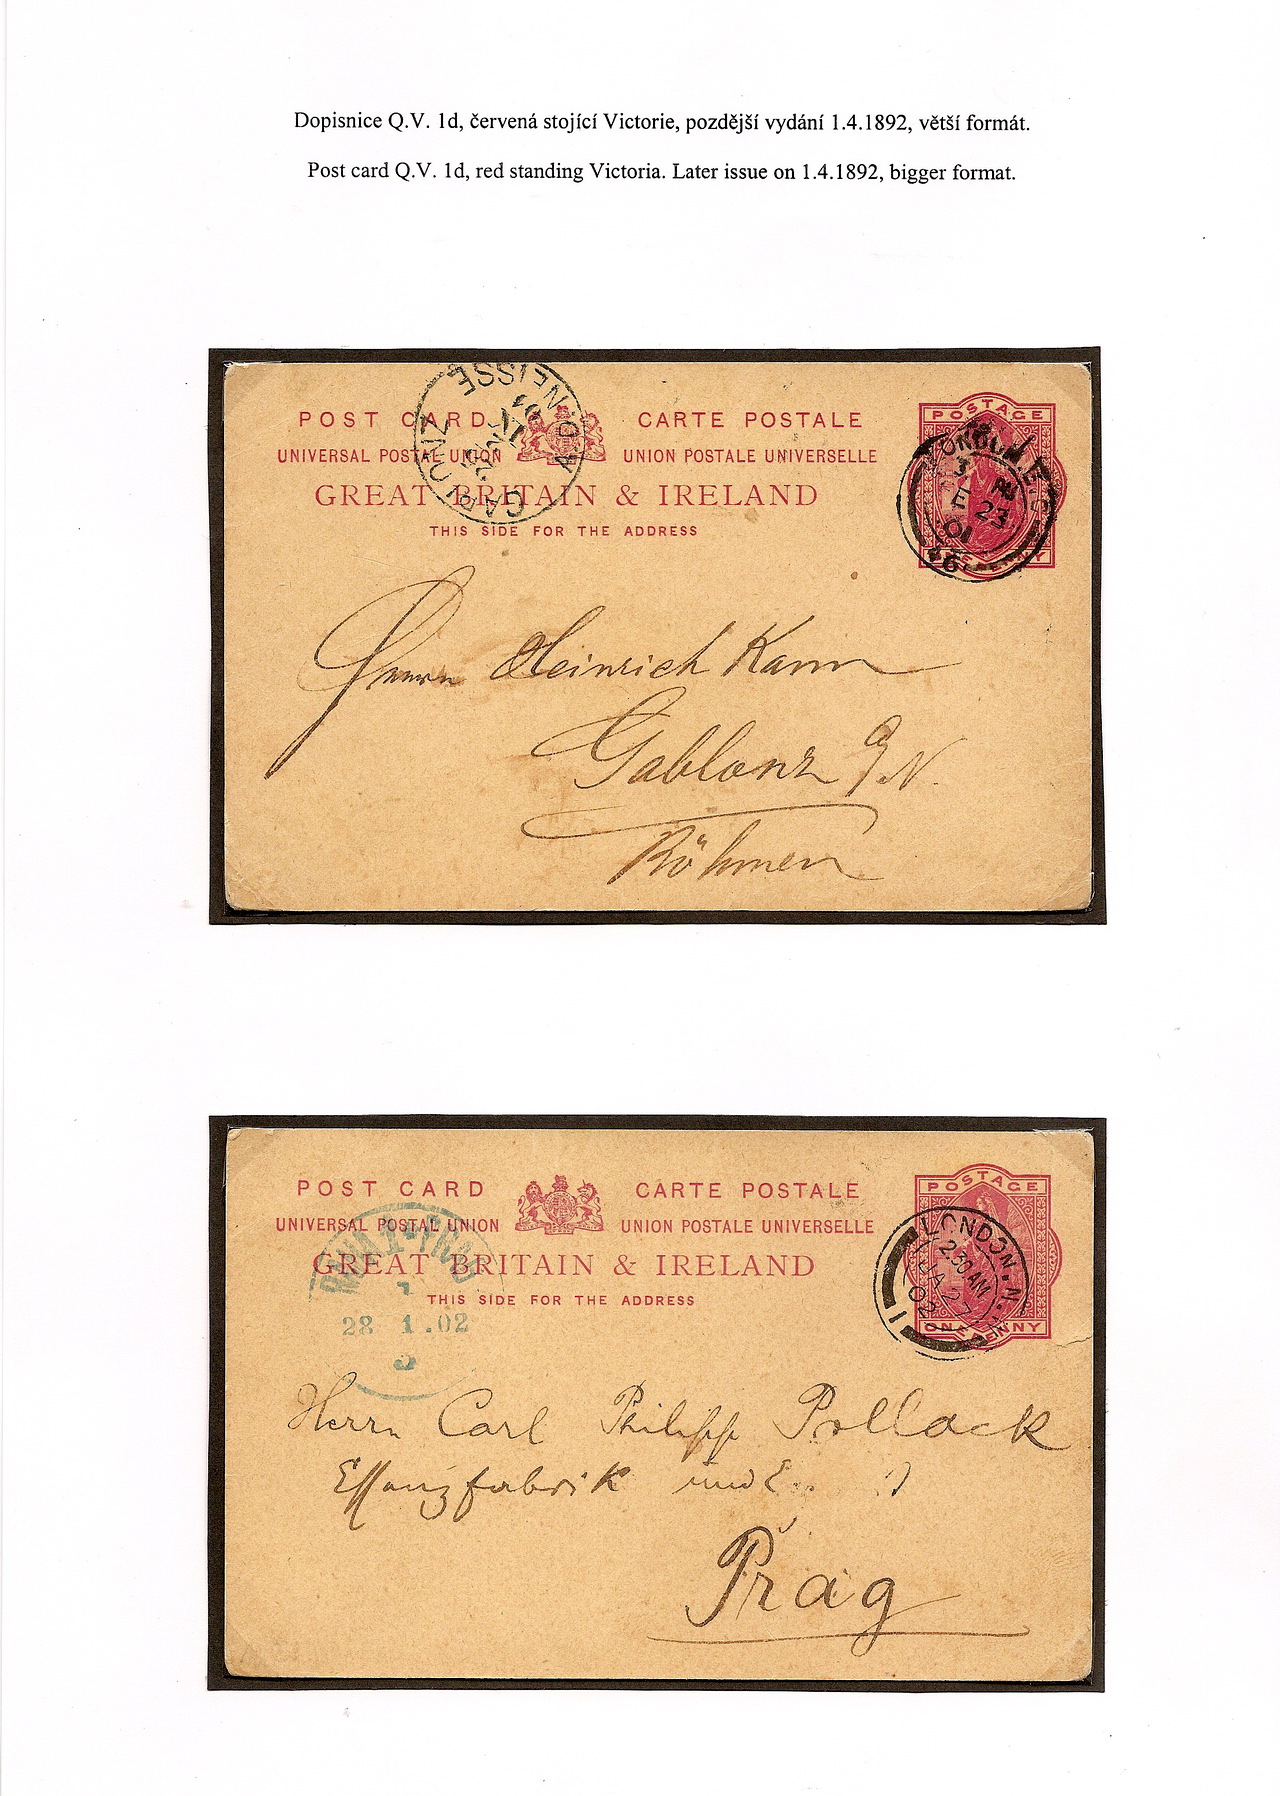 Dopisnice Q.V. 1d, červená stojící Victorie, pozdější vydání 1.4.1892, větší formát.
Post card Q.V. 1d, red standing Victoria. Later issue on 1.4.1892, bigger format.
POST CARD CARTE POSTALE
UNIVERSAL POSTAL UNION UNION POSTALE UNIVERSELLE
GREAT BRITAIN & IRELAND
THIS SIDE FOR THE ADDRESS
GABLONZ A.D. NEISSE
01
POSTAGE
LONDON
23
01
46
Herrn Heinrich Kann
Gablonz
Böhmen
POST CARD CARTE POSTALE
UNIVERSAL POSTAL UNION UNION POSTALE UNIVERSELLE
GREAT BRITAIN & IRELAND
THIS SIDE FOR THE ADDRESS
PRAG
28 1.02
POSTAGE
ONE PENNY
LONDON.N.
2.30 AM
JA 27
02
1
Herrn Carl Philipp Pollack
Essigfabrik und
Prag